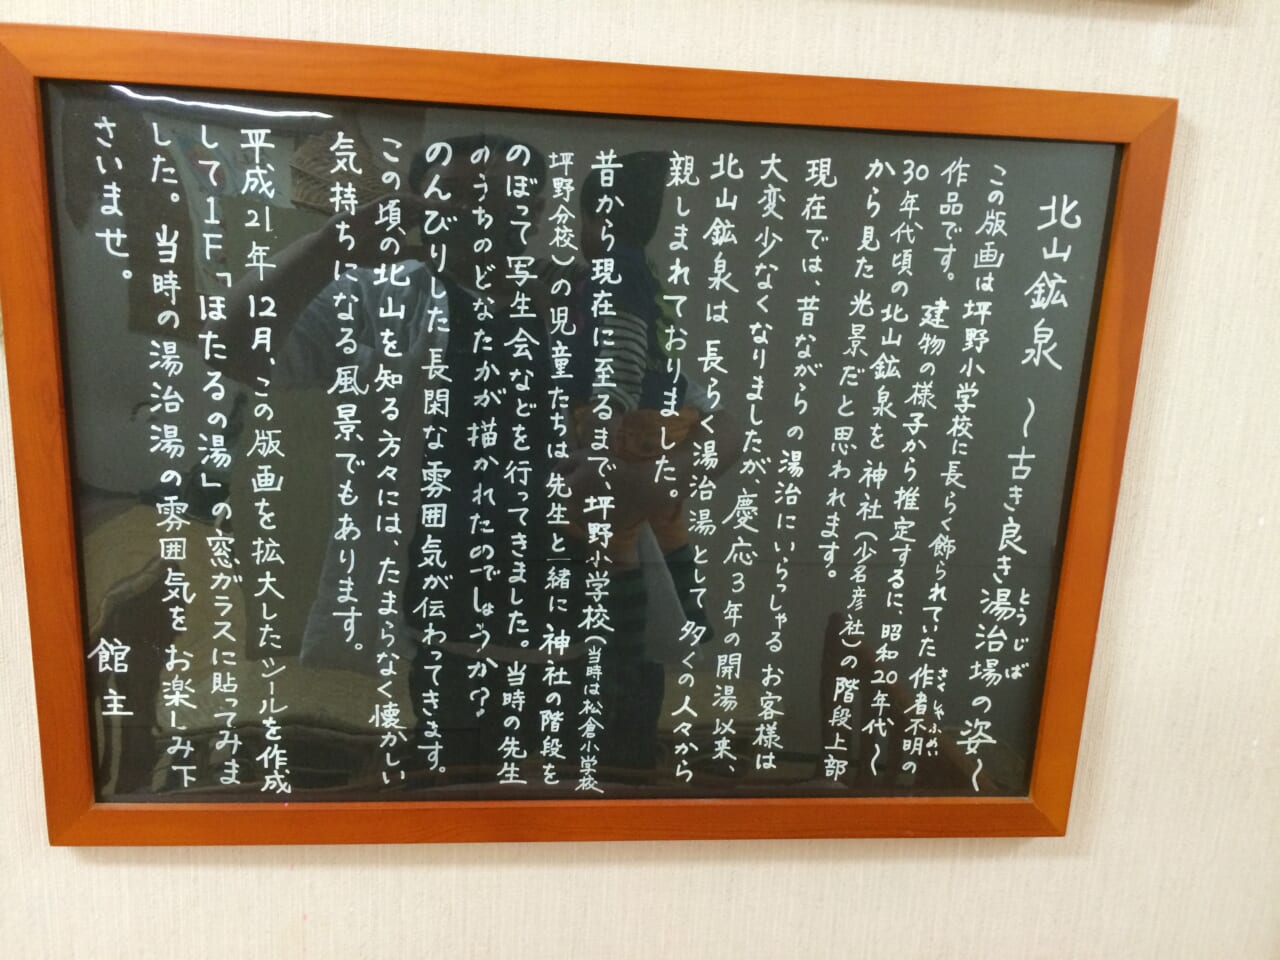 北山鉱泉 〜古き良き湯治場の姿〜
とうじば
この版画は坪野小学校に長らく飾られていた作者不明の
さくしゃふめい
作品です。 建物の様子から推定するに、昭和20年代〜
30年代頃の北山鉱泉を神社(少名彦社)の階段上部
から見た光景だと思われます。
現在では、昔ながらの湯治にいらっしゃるお客様は
大変少なくなりましたが、慶応3年の開湯以来、
北山鉱泉は長らく湯治湯として多くの人々から
親しまれておりました。
昔から現在に至るまで、坪野小学校(当時は松倉小学校
坪野分校)の児童たちは先生と一緒に神社の階段を
のぼって写生会などを行ってきました。当時の先生
のうちのどなたかが描かれたのでしょうか?
のんびりした長閑な雰囲気が伝わってきます。
この頃の北山を知る方々には、たまらなく懐かしい
気持ちになる風景でもあります。
平成21年12月、この版画を拡大したシールを作成
して1F「ほたるの湯」の窓ガラスに貼ってみま
した。当時の湯治湯の雰囲気をお楽しみ下
さいませ。
館主